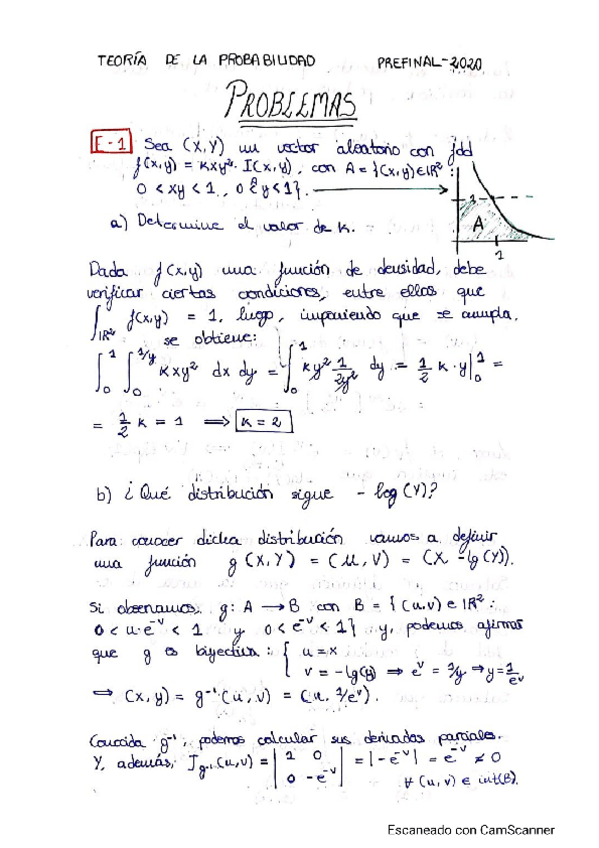 TEORÍA DE LA PROBABILIDAD PREFINAL-2020
PROBLEMAS
E-1 Sea (X,Y) un vector aleatorio con fdd
f(x,y) = kxy² · I(x,y), con A = {(x,y) ∈ IR²
0 < xy < 1, 0 < y < 1}.
1
A
1
a) Determine el valor de k.
Dada f(x,y) una función de densidad, debe
verificar ciertas condiciones, entre ellas que
∫_IR² f(x,y) = 1, luego, imponiendo que se cumpla,
se obtiene:
∫₀¹ ∫₀^(1/y) kxy² dx dy = ∫₀¹ ky² 1/2y² dy = 1/2 k · y|₀¹ =
= 1/2 k = 1 ⟹ k = 2
b) ¿Qué distribución sigue - log(Y)?
Para conocer dicha distribución vamos a definir
una función g(X,Y) = (U,V) = (X, -lg(Y)).
Si observamos, g: A → B con B = {(u,v) ∈ IR² :
0 < u·e^-v < 1 y 0 < e^-v < 1} y, podemos afirmar
que g es biyectiva: { u = x
v = -lg(y) ⇒ e^v = 1/y ⇒ y = 1/e^v
⟹ (x,y) = g⁻¹(u,v) = (u, 1/e^v).
Conocida g⁻¹, podemos calcular sus derivadas parciales.
Y, además, J_g⁻¹(u,v) = |1 0| = |-e^-v| = e^-v ≠ 0
|0 -e^-v| ∀ (u,v) ∈ int(B).
Escaneado con CamScanner